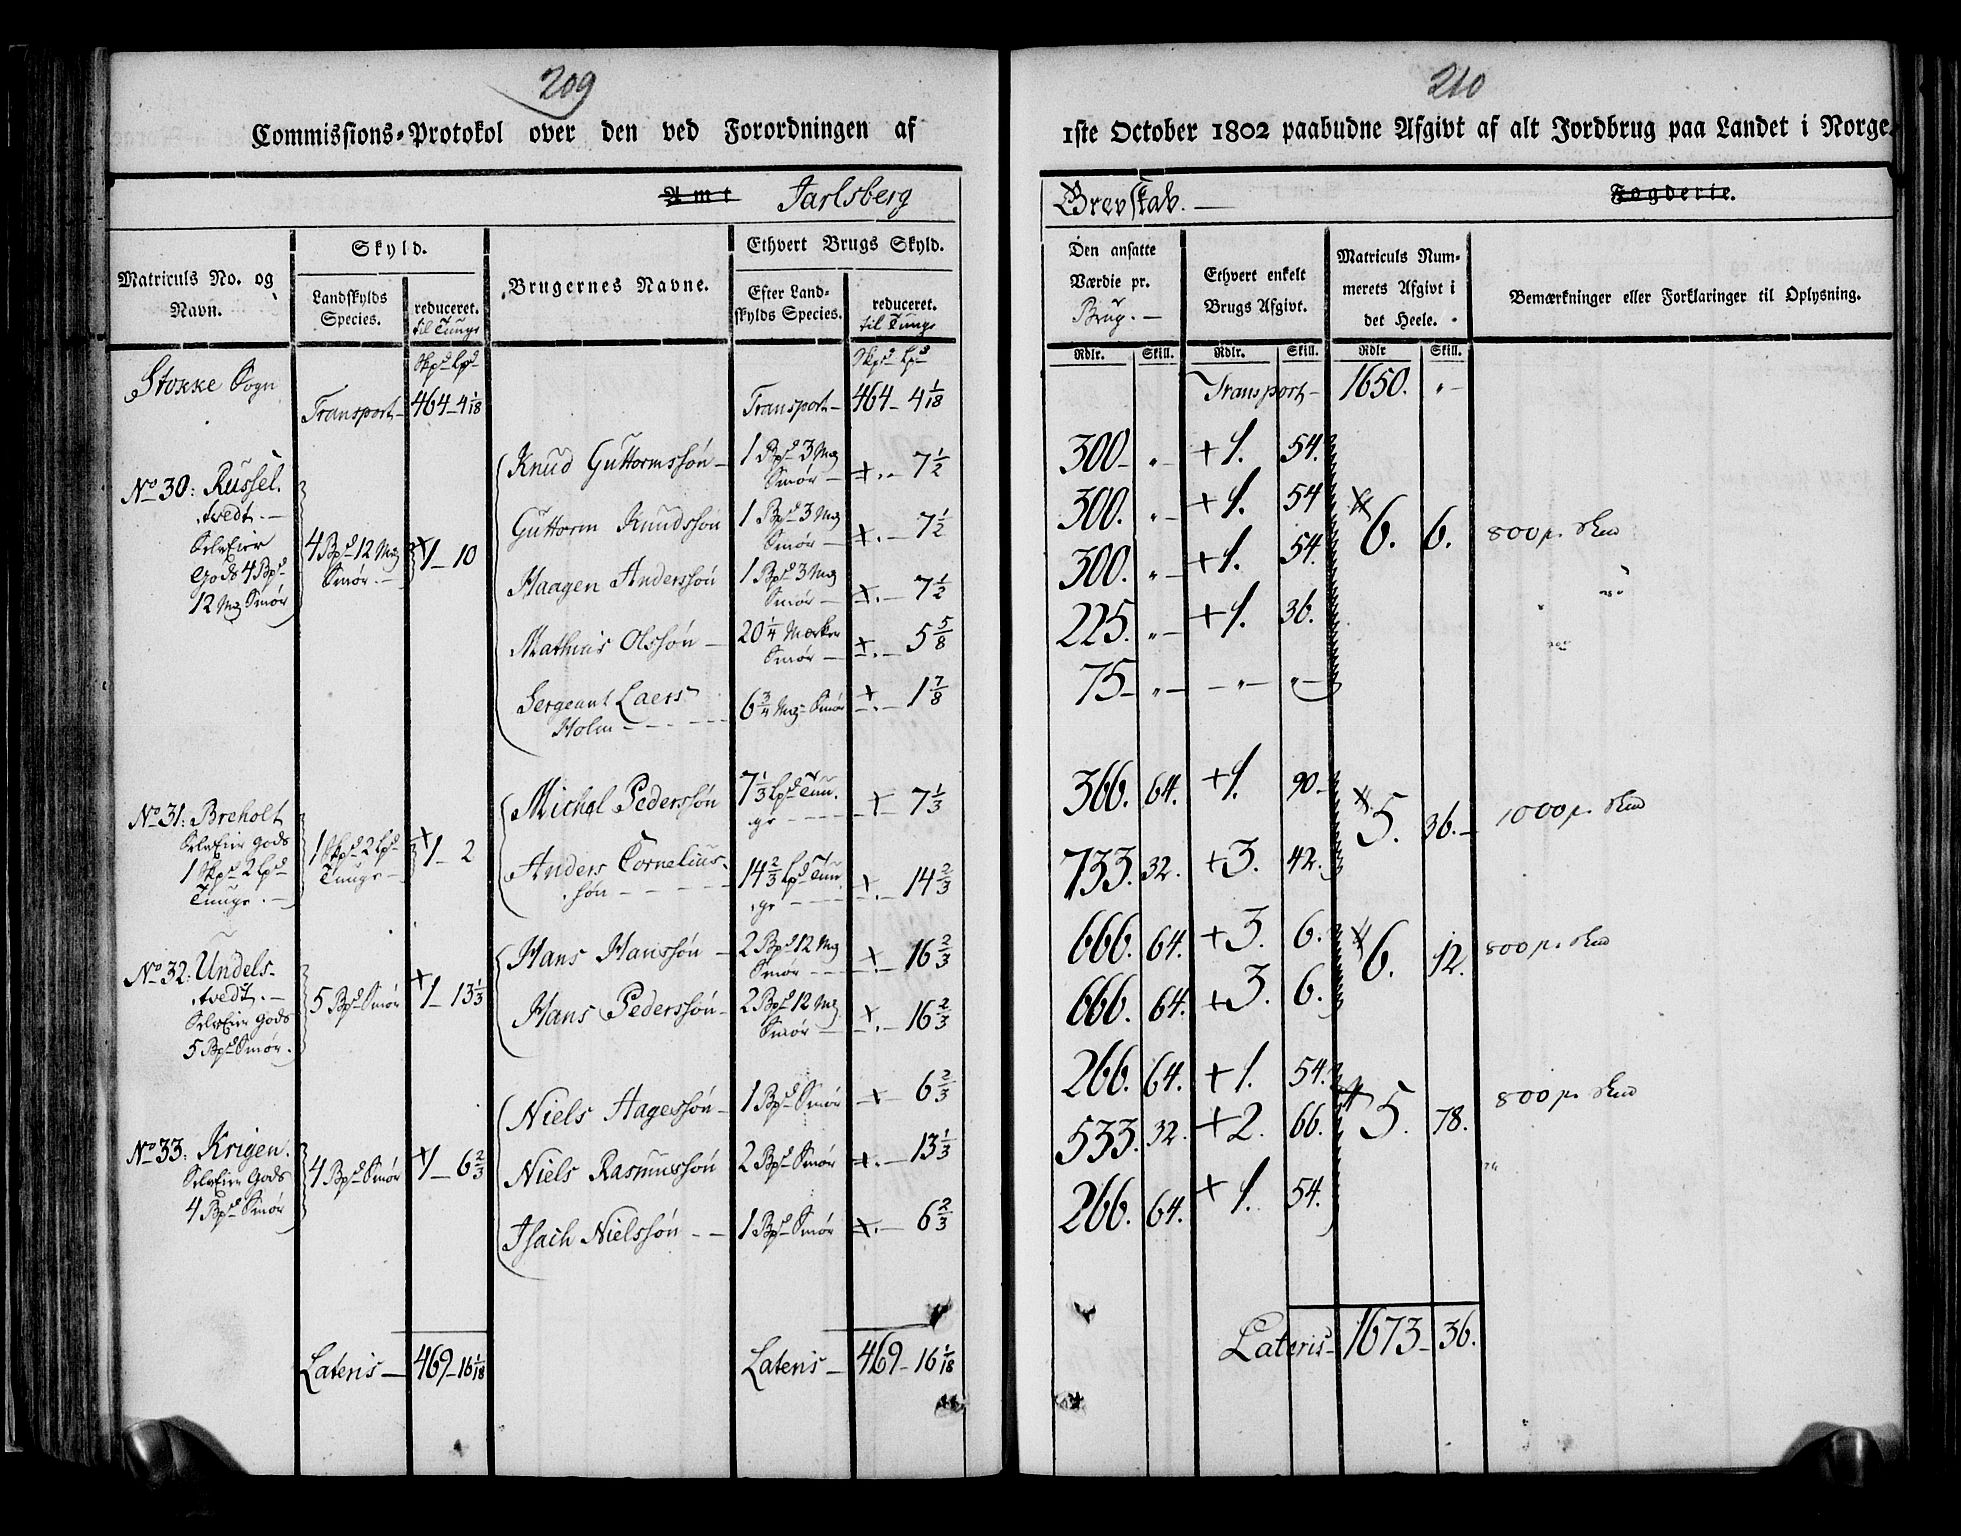 209
Commissions-Protokol over den ved Forordningen af
Amt Jarlsberg
Matriculs No. og
Navn.
Skyld.
Landskylds
Species.
reduceret.
til Tunge
Brugernes Navne.
Ethvert Brugs Skyld.
Efter Land-
skylds Species.
reduceret.
til Tunge
Skpd Lpd
Skpd Lpd
Stokke Sogn
Transport— 464—4 1/18
Transport— 464—4 1/18
No 30: Russel.
tvedt.—
SelvEier
Gods 4 Bpd
12 Mg Smør
4 Bpd 12 Mg
Smør.—
1—10
Knud Guttormssøn—
1 Bpd 3 Mg
Smør— 7 1/2
Guttorm Knudssøn
1 Bpd 3 Mg
Smør— 7 1/2
Haagen Anderssøn
1 Bpd 3 Mg
Smør— 7 1/2
Mathias Olssøn—
20 1/4 Mærker
Smør— 5 5/8
Sergeant Laers
Holm
6 3/4 Mg Smør 1 7/8
No 31: Breholt
SelvEier Gods
1 Skpd 2 Lpd
Tunge.—
1 Skpd 2 Lpd
Tunge—
1—2
Michel Pederssøn
7 1/3 Lpd Tun-
ge 7 1/3
Anders Cornelius-
søn
14 2/3 Lpd Tun-
ge 14 2/3
No 32: Undels-
tvedt.—
SelvEier Gods
5 Bpd Smør.
5 Bpd Smør 1—13 1/3
Hans Hanssøn—
2 Bpd 12 Mg
Smør 16 2/3
Hans Pederssøn—
2 Bpd 12 Mg
Smør— 16 2/3
No 33: Krigen.
SelvEier Gods
4 Bpd Smør
4 Bpd Smør 1—6 2/3
Niels Hagessøn— 1 Bpd Smør 6 2/3
Niels Rasmussøn 2 Bpd Smør 13 1/3
Isach Nielssøn 1 Bpd Smør 6 2/3
Lateris— 469—16 1/18
Lateris— 469—16 1/18
210
1ste October 1802 paabudne Afgivt af alt Jordbrug paa Landet i Norge.
Grevskab.— Fogderie.
Den ansatte
Værdie pr.
Brug.—
Ethvert enkelt
Brugs Afgivt.
Matriculs Num-
merets Afgivt i
det Heele.
Bemærkninger eller Forklaringer til Oplysning.
Rdlr. Skill. Rdlr. Skill. Rdlr Skill.
Transport— 1650. „—
300— „— +1. 54.
300. „— +1. 54
6. 6. 800 pr. Skd
300. „— +1. 54.
225. „— +1. 36.
75— „— — „— „—
366. 64. +1. 90.
5. 36.— 1000 pr. Skd
733. 32. +3. 42.
666. 64. +3. 6.
6. 12. 800 pr. Skd
666. 64. +3. 6.
266. 64. +1. 54.
533. 32. +2. 66.
5. 78. 800 pr. Skd
266. 64. +1. 54.
Lateris— 1673—36.